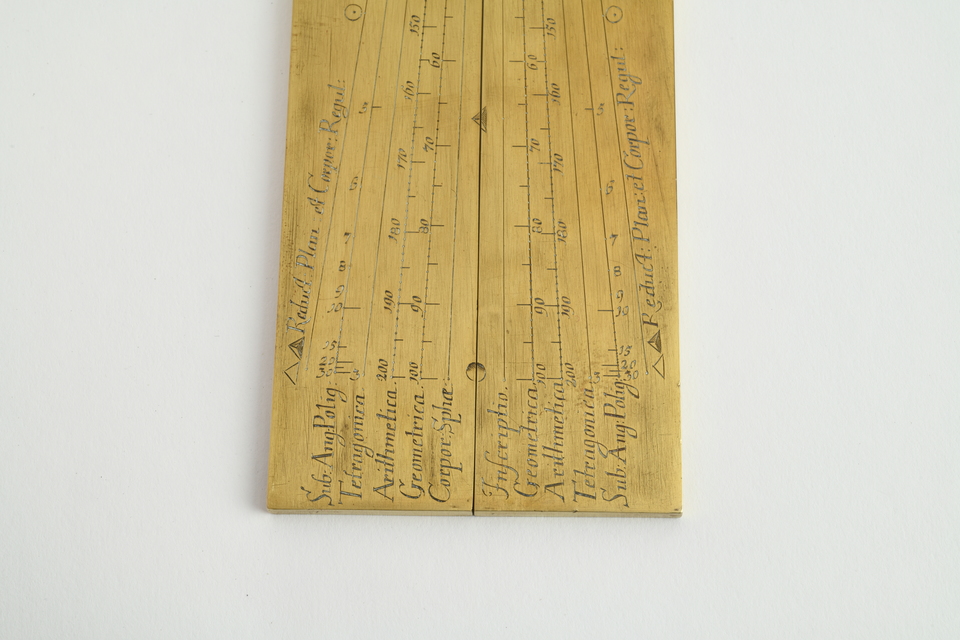 Reduct: Plan: et Corpor: Regul:
Sub: Ang: Polig.
Tetragonica.
Arithmetica.
Geometrica.
Corpor: Sphæ:
Inscriptio.
Geometrica.
Arithmetica.
Tetragonica.
Sub: Ang: Polig:
Reduct: Plan: et Corpor: Regul:
150
160
170
180
190
200
60
70
80
90
100
60
70
80
90
100
150
160
170
180
190
200
5
6
7
8
9
10
15
20
30
3
6
7
8
9
10
15
20
30
3